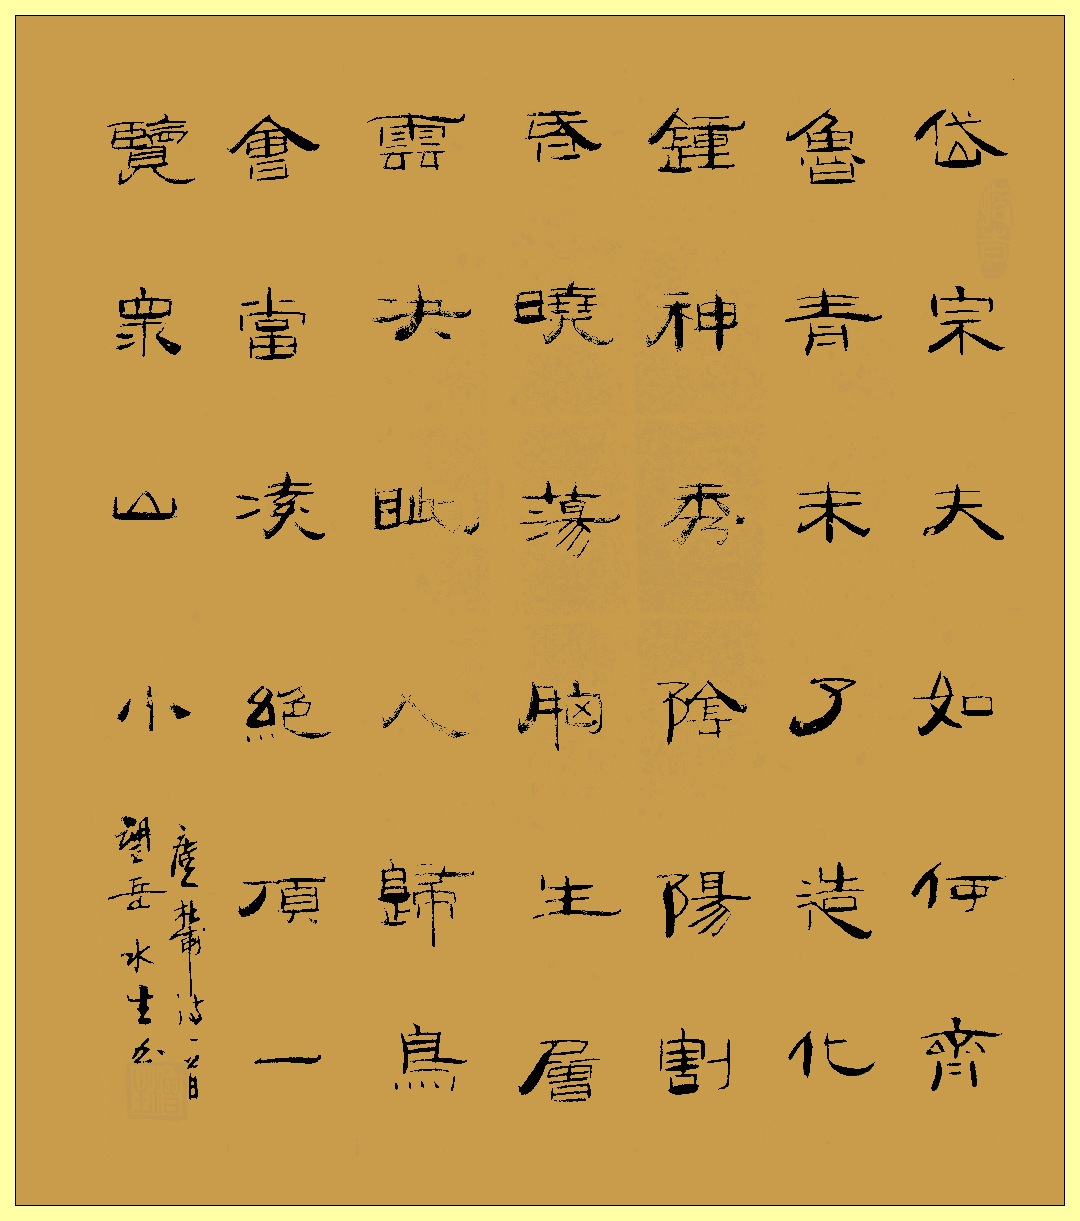 岱宗夫如何齊
魯青未了造化
鍾神秀陰陽割
昏曉蕩胸生層
雲決眦入歸鳥
會當凌絕頂一
覽眾山小
唐杜甫诗一首
望岳 水生书